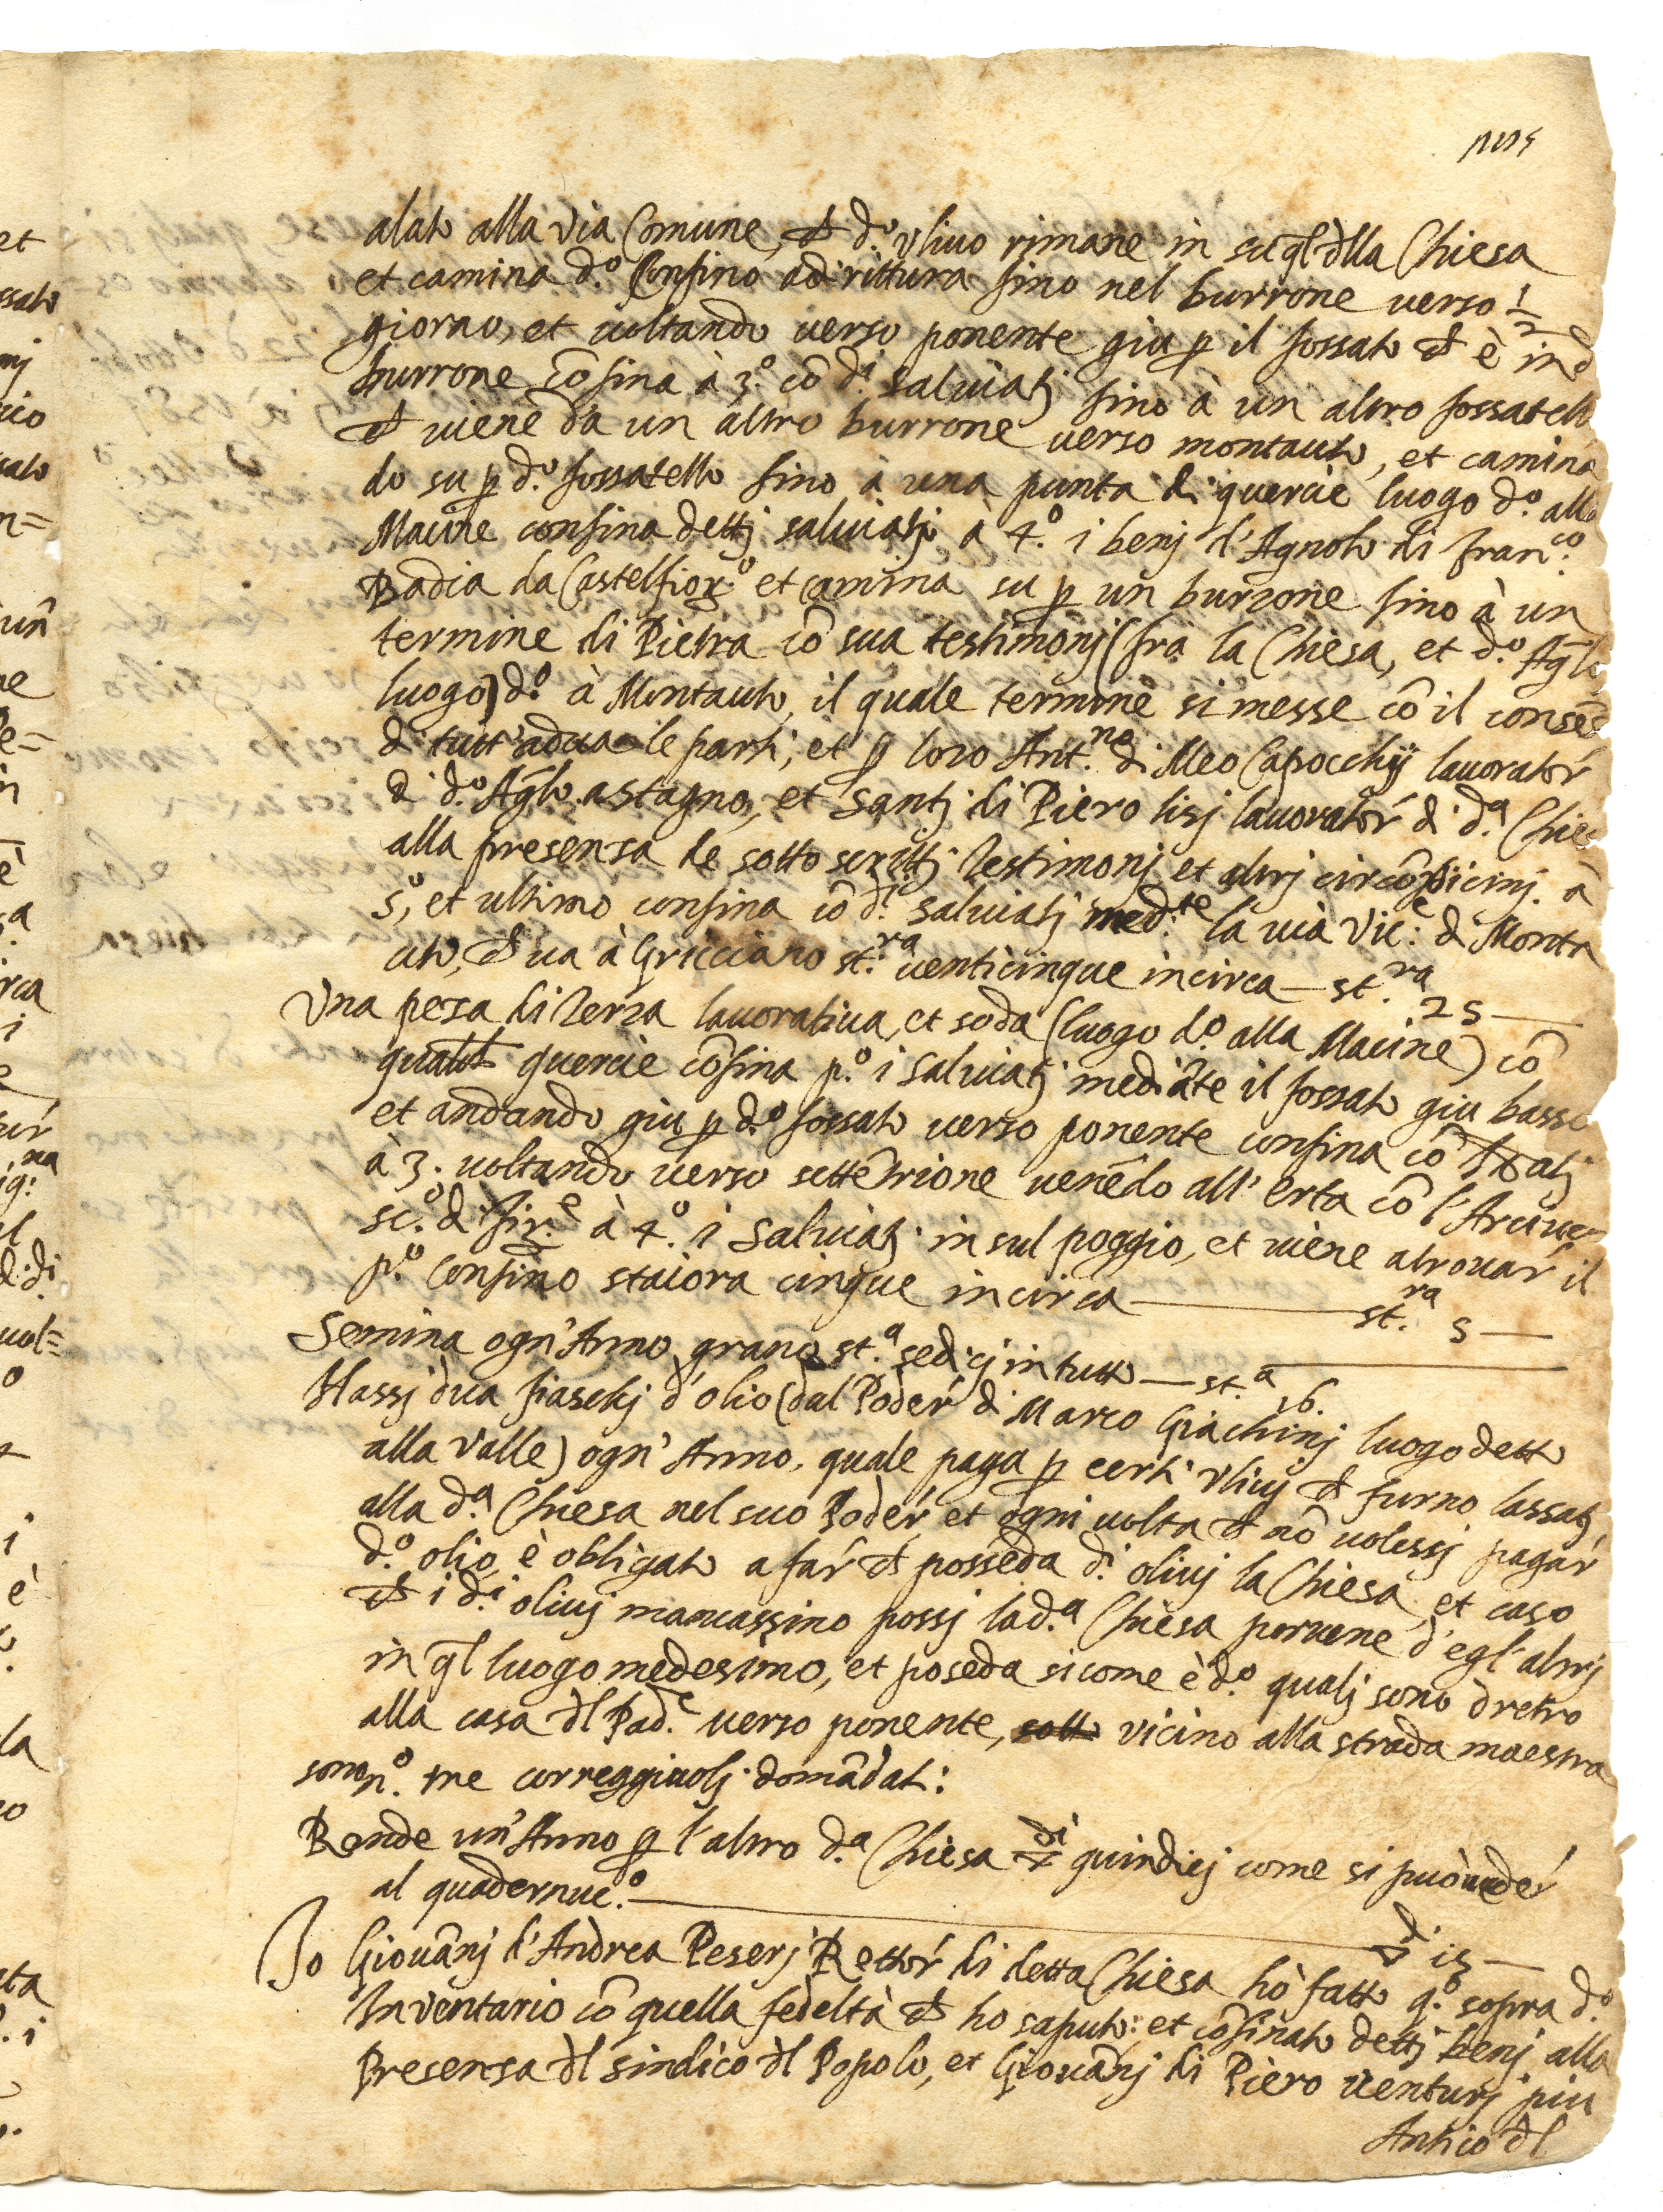 alato alla via Comune, ch d.o vliuo rimane in su ql dlla Chiesa
et camina d.o Confino adirittura fino nel burrone verso 1/2
giorno, et uoltando uerso ponente giu p il fossato ch è in d
burrone cõfina à 3.o cõ d.i saluiatj fino à un altro fossatell
ch uiene da un altro burrone uerso montauto, et camina
do su p d.o fossatello fino à una punta di quercie luogo d.o alla
Macine confina dettj saluiatj à 4.o i benj d'Agnolo di fran.co
Badia da Castelfior.o et camina su p un burrone fino à un
termine di Pietra cõ sua testimonj (frà la Chiesa, et d.o Agl
luogo) d.o à Montauto, il quale termine si messe cõ il conse
di tutt'adua le parti, et p loro Ant.no di Meo Capocchij lauorator
di d.o Aglo astagno, et Santj di Piero lisj lauorator di d.a Chie
alla presensa de sotto scrittj Testimonj et altrj circõuicinj. à
5.o, et ultimo confina cõ d.i saluiatj med.te la uia Vic: di Monta
uto, ch ua à Gricciano st.ra uenticinque incirca — st.ra 25 —
Una peza di Terra lauoratiua, et soda (luogo d.o alla Macine) cõ
qualch quercie cõfina p.o i saluiatj mediãte il fossato giu basso
et andando giu p d.o fossato uerso ponente confina cõ
à 3. uoltando uerso settẽtrione uenẽdo all'erta cõ l'Arciue
sc.o di fir.e à 4.o i Saluiatj in sul poggio, et uiene atrouar il
p.o Confino staiora cinque incirca — st.ra 5 —
Semina ogn'Anno grano st.a sedicj in tutto — st.a 16.
Hassj dua fiaschj d'olio (dal Poder di Marco Giachinj luogo detto
alla Valle) ogn'Anno, quale paga p certi Vliuj ch furno lassatj
alla d.a Chiesa nel suo Poder, et ogni uolta ch nõ uolessj pagar
d.o olio, è obligato a far ch posseda d.i oliuj la Chiesa, et caso
ch i d.i oliuj mancassino possj la d.a Chiesa poruene d'egl'altrj
in ql luogo medesimo, et poseda si come è d.o qualj sono dretro
alla casa dl Pad.e uerso ponente, sotto vicino alla strada maestra
sono n.o tre correggiuolj domãdati:
Rende un'Anno p l'altro d.a Chiesa di quindicj come si può ueder
al quadernuc.o — di 15 —
Io Giouãnj d'Andrea Peserj Rettor di detta Chiesa hò fatto q.o sopra d.o
Inventario cõ quella fedeltà ch ho saputo: et cõfinato dettj benj alla
Presensa dl sindico dl Popolo, et Giouãnj di Piero Venturj piu
Antico dl